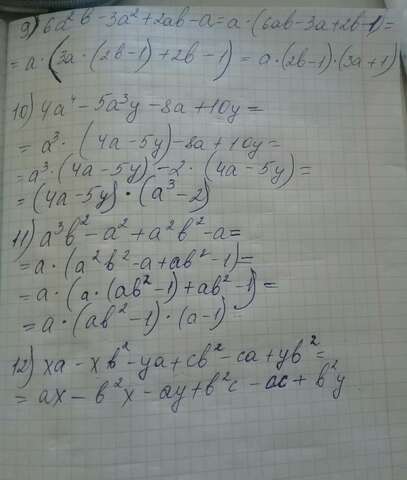 9) 6a²b-3a²+2ab-a=a·(6ab-3a+2b-1)=
=a·(3a·(2b-1)+2b-1)=a·(2b-1)·(3a+1)
10) 4a⁴-5a³y-8a+10y=
=a³·(4a-5y)-8a+10y=
=a³·(4a-5y)-2·(4a-5y)=
=(4a-5y)·(a³-2)
11) a³b²-a²+a²b²-a=
=a·(a²b²-a+ab²-1)=
=a·(a·(ab²-1)+ab²-1)=
=a·(ab²-1)·(a-1)
12) xa-xb²-ya+cb²-ca+yb²=
=ax-b²x-ay+b²c-ac+b²y